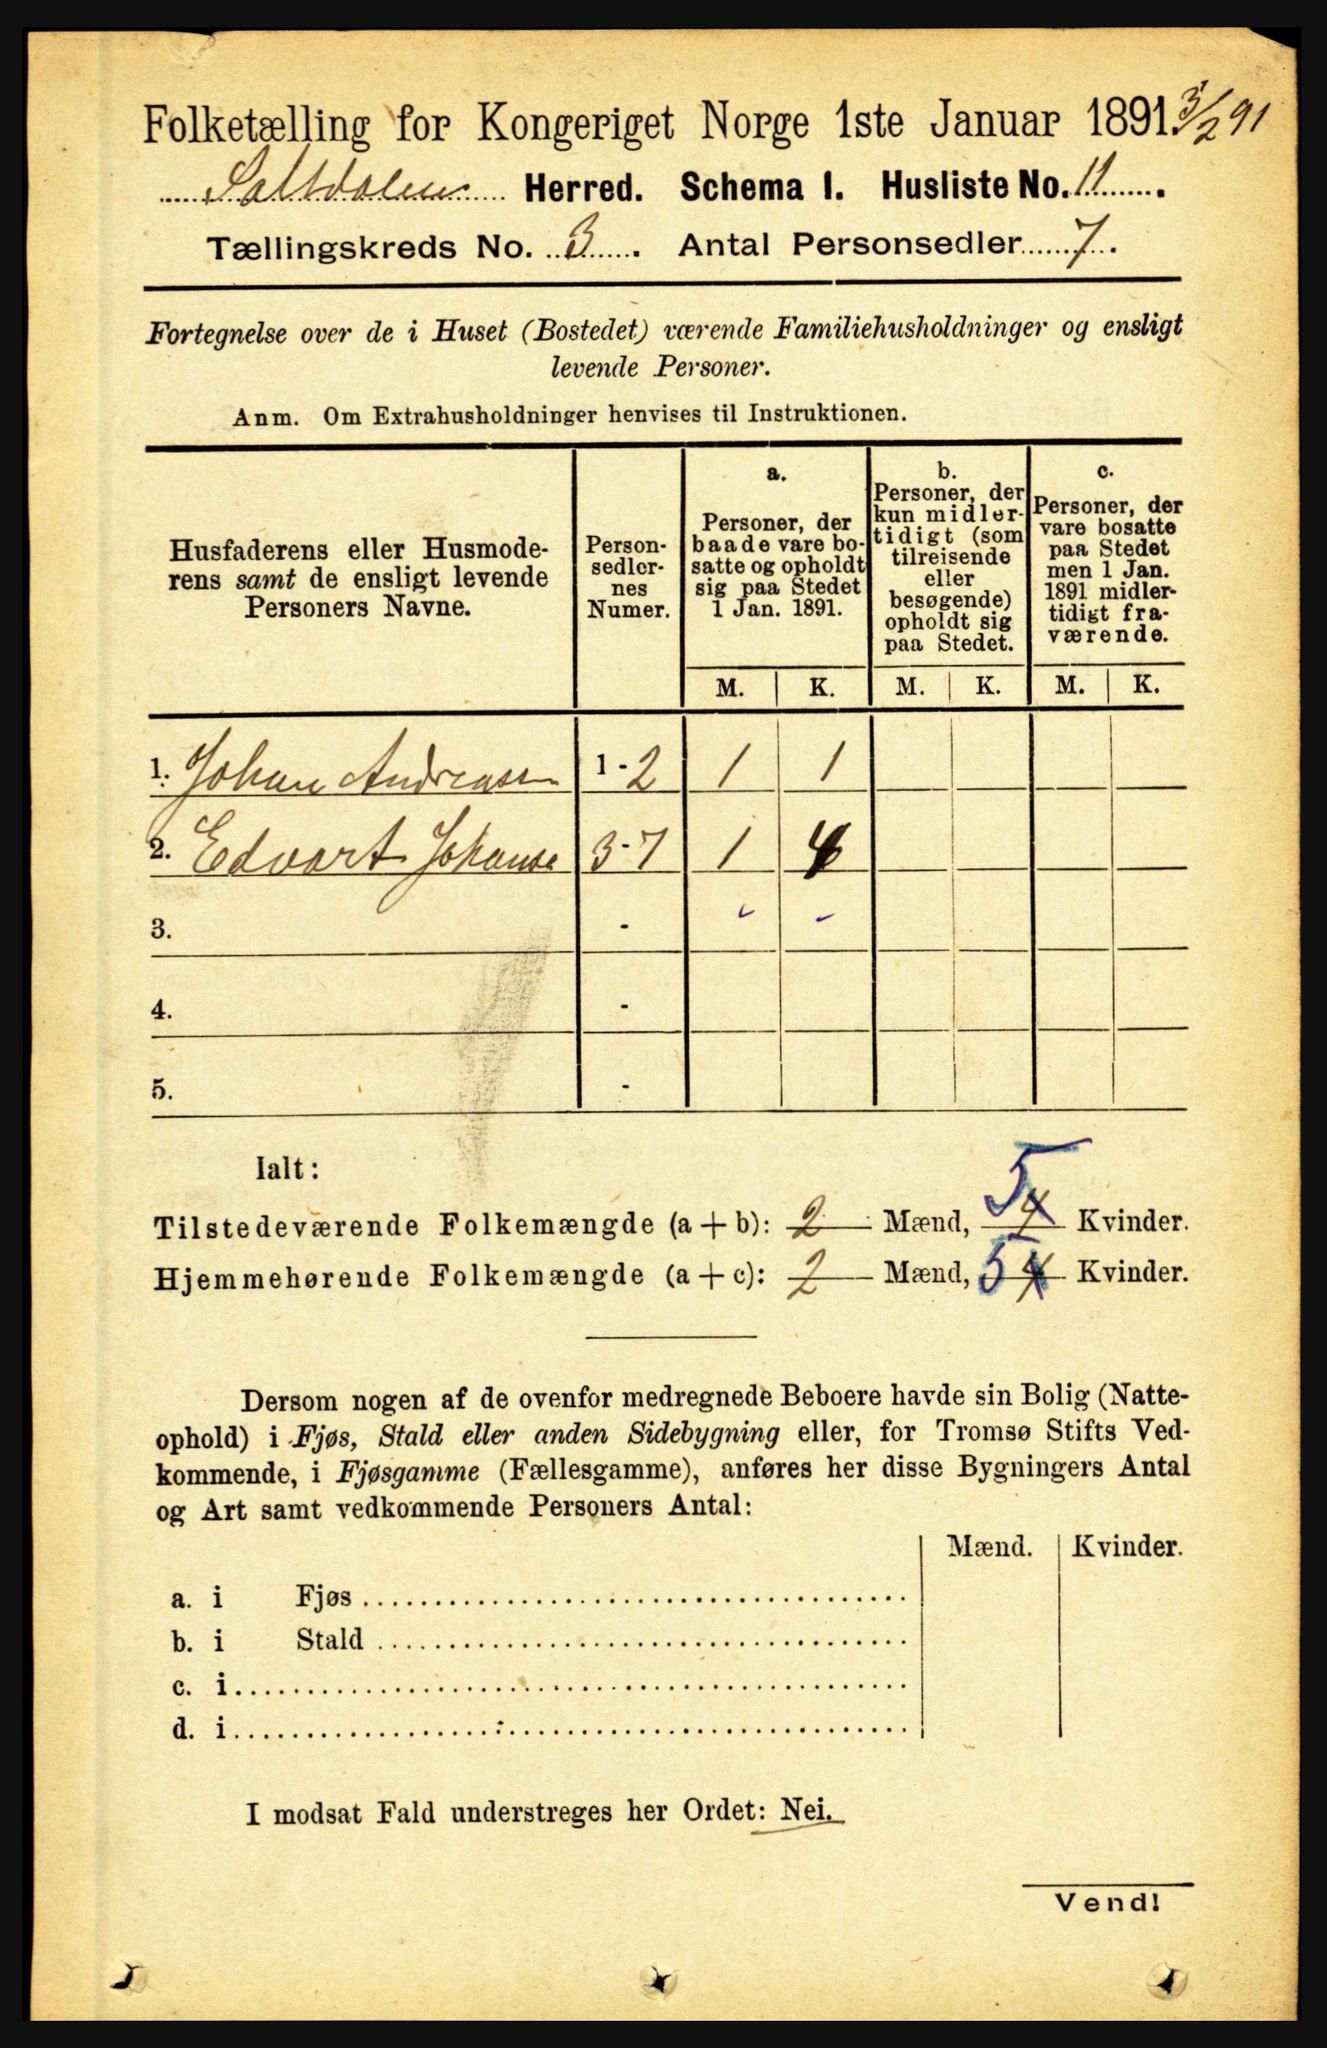 Folketælling for Kongeriget Norge 1ste Januar 1891. 3/2 91
Saltdalen Herred. Schema I. Husliste No. 11.
Tællingskreds No. 3. Antal Personsedler 7.
Fortegnelse over de i Huset (Bostedet) værende Familiehusholdninger og ensligt
levende Personer.
Anm. Om Extrahusholdninger henvises til Instruktionen.
Husfaderens eller Husmoderens samt de ensligt levende Personers Navne.
Personsedlernes Numer.
a.
Personer, der baade vare bosatte og opholdt sig paa Stedet 1 Jan. 1891.
b.
Personer, der kun midlertidigt (som tilreisende eller besøgende) opholdt sig paa Stedet.
c.
Personer, der vare bosatte paa Stedet men 1 Jan. 1891 midlertidigt fraværende.
M. K. M. K. M. K.
1. Johan Andreassen 1-2 1 1
2. Edvart Johanse 3-7 1 4
3. -
4. -
5. -
Ialt:
Tilstedeværende Folkemængde (a+b): 2 Mænd, 5 4 Kvinder.
Hjemmehørende Folkemængde (a+c): 2 Mænd, 5 4 Kvinder.
Dersom nogen af de ovenfor medregnede Beboere havde sin Bolig (Natte-
ophold) i Fjøs, Stald eller anden Sidebygning eller, for Tromsø Stifts Ved-
kommende, i Fjøsgamme (Fællesgamme), anføres her disse Bygningers Antal
og Art samt vedkommende Personers Antal:
Mænd. Kvinder.
a. i Fjøs
b. i Stald
c. i
d. i
I modsat Fald understreges her Ordet: Nei.
Vend!